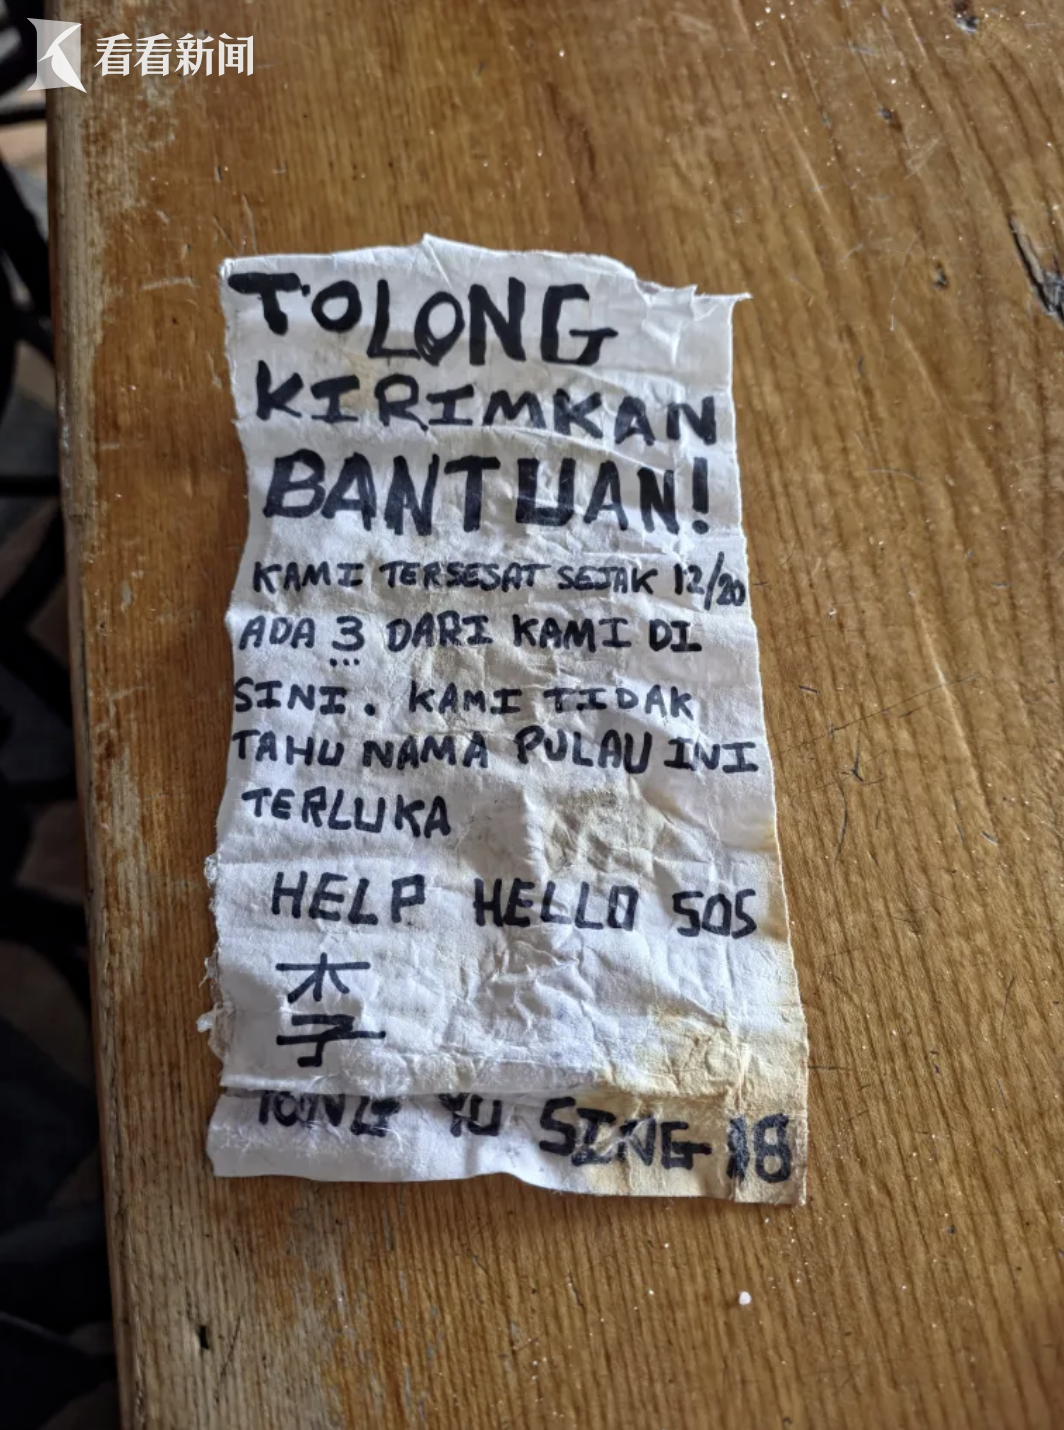 看看新闻
TOLONG
KIRIMKAN
BANTUAN!
KAMI TERSESAT SEJAK 12/20
ADA 3 DARI KAMI DI
SINI. KAMI TIDAK
TAHU NAMA PULAU INI
TERLUKA
HELP HELLO SOS
木
子
YONG YU SING 18